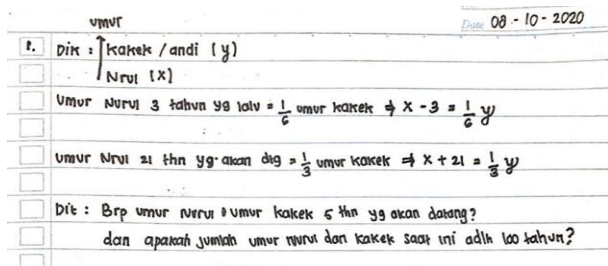 Date 08 - 10 - 2020
umur
1. Dik : kakek / andi (y)
Nrul (x)
Umur Nurul 3 tahun yg lalu = 1/6 umur kakek ⇒ x - 3 = 1/6 y
Umur Nrul 21 thn yg akan dtg = 1/3 umur kakek ⇒ x + 21 = 1/3 y
Dit : Brp umur nurul & umur kakek 5 thn yg akan datang?
dan apakah jumlah umur nurul dan kakek saat ini adlh 100 tahun?